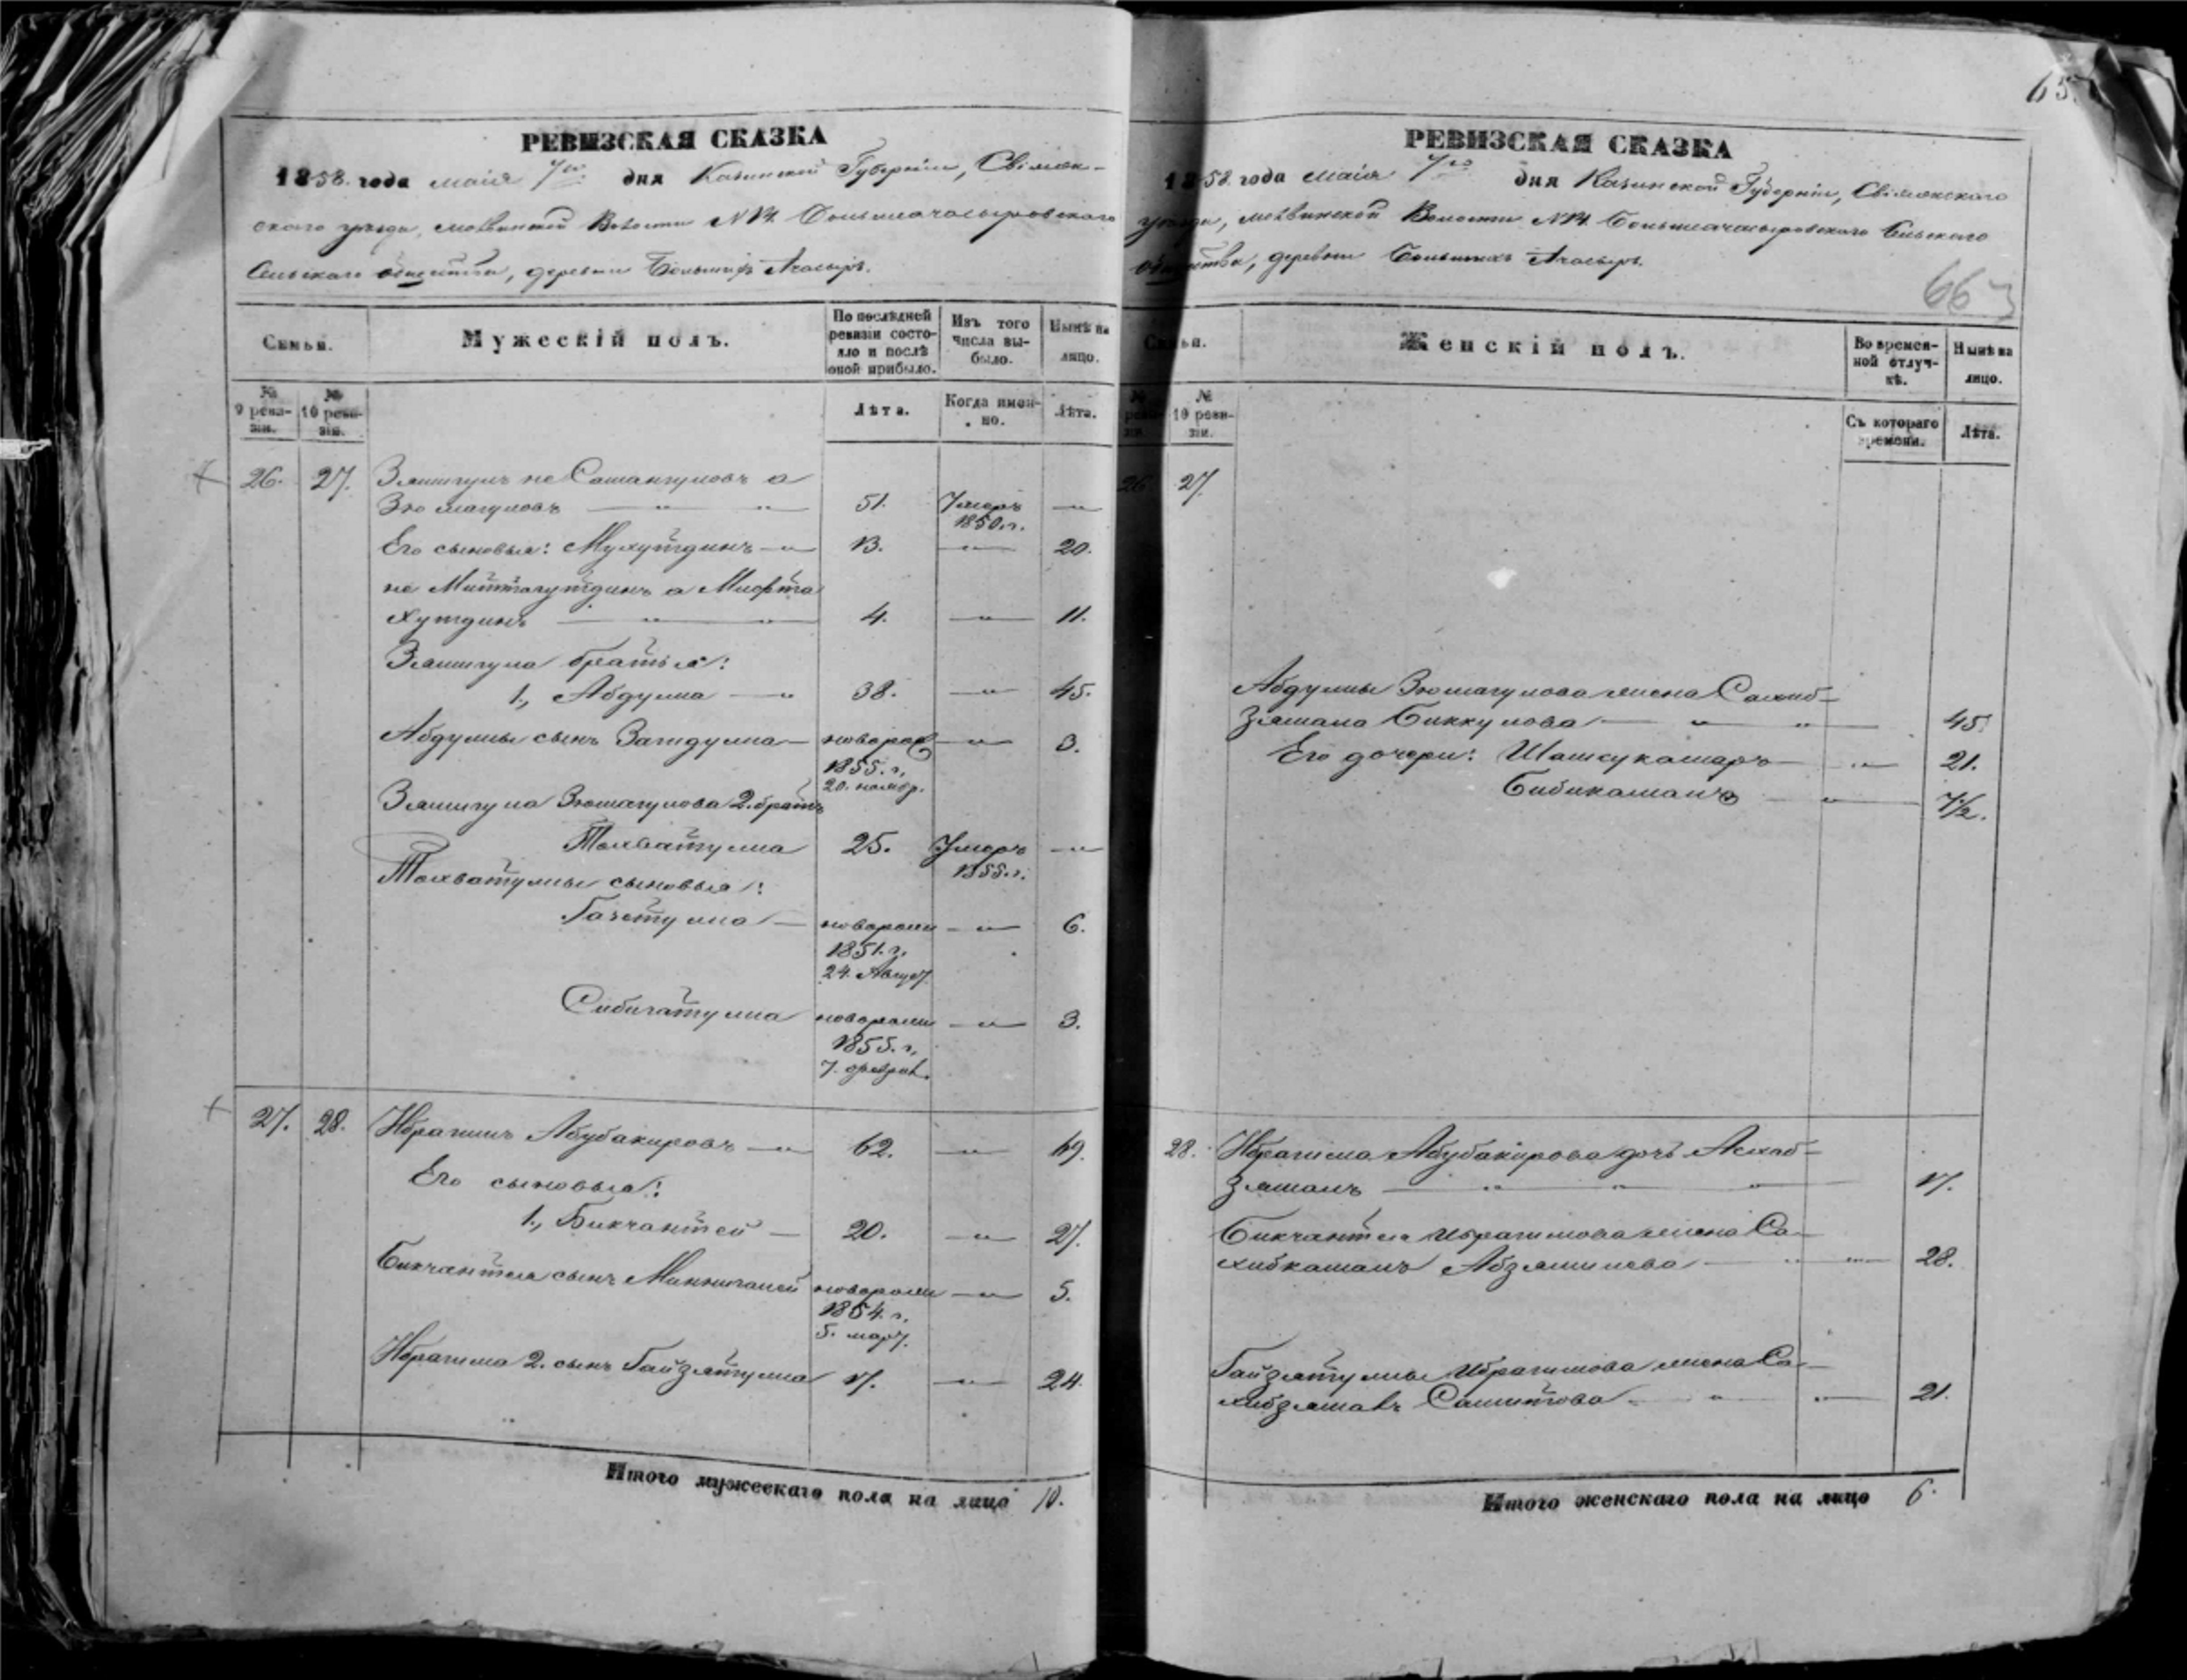 РЕВИЗСКАЯ СКАЗКА
1858. года маія 7го дня Казанской Губерніи, Свіяж-
скаго уѣзда, Волости № Большеачасыровскаго
Сельскаго общества, деревни Большихъ Ачасыръ.
Семьи.
Мужескій полъ.
По послѣдней ревизіи состояло и послѣ оной прибыло.
Изъ того числа выбыло.
Нынѣ на лицо.
№ 9 ревизіи.
№ 10 ревизіи.
Лѣта.
Когда именно.
Лѣта.
26. 27. не а
51. Умеръ — " —
1850. г.
Его сыновья: Мухутдинъ — " — 13. — " — 20.
не а
хутдинъ — " — " — 4. — " — 11.
братья:
1., Абдулла — " 38. — " — 45.
Абдуллы сынъ Загидулла — новорож — " — 3.
1855. г.
20. ноябр.
2. братъ
Тохватулла 25. Умеръ — " —
1855. г.
Тохватуллы сыновья:
новорож — " — 6.
1851. г.
24. Август
Сибигатулла новорож — " — 3.
1855. г.
7. феврал.
27. 28. Ибрагимъ Абубакировъ — " — 62. — " — 69.
Его сыновья:
1., Бикчантей — 20. — " — 27.
Бикчантея сынъ Миннигалей новорож — " — 5.
1854. г.
5. март.
Ибрагима 2. сынъ Гайзятулла 17. — " — 24.
Итого мужескаго пола на лицо 10.
65.
РЕВИЗСКАЯ СКАЗКА
1858. года маія 7го дня Казанской Губерніи, Свіяжскаго
уѣзда, Волости № Большеачасыровскаго Сельскаго
общества, деревни Большихъ Ачасыръ.
66
Семьи.
Женскій полъ.
Во временной отлучкѣ.
Нынѣ на лицо.
№ ревизіи.
№ 10 ревизіи.
Съ котораго времени.
Лѣта.
26. 27.
Абдуллы жена Сахиб-
зямала Биккулова — " — " — 45.
Его дочери: Шамсукамаръ — " — 21.
Бибикамалъ — " — 7½.
28. Ибрагима Абубакирова дочь Асхаб-
зямалъ — " — " — " — 17.
Бикчантея Ибрагимова жена Са-
хибкамалъ Абзялилева — " — 28.
Гайзятуллы Ибрагимова жена Са-
хибзямалъ Сашитова — " — " — 21.
Итого женскаго пола на лицо 6.